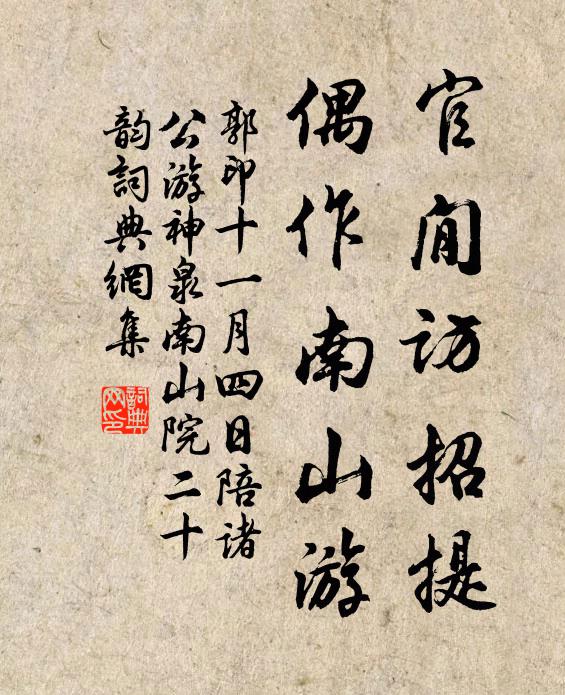 官閒訪招提
偶作南山游
郭印十一月四日陪诸
公游神泉南山院二十
韵詞典網集
詞典
网印